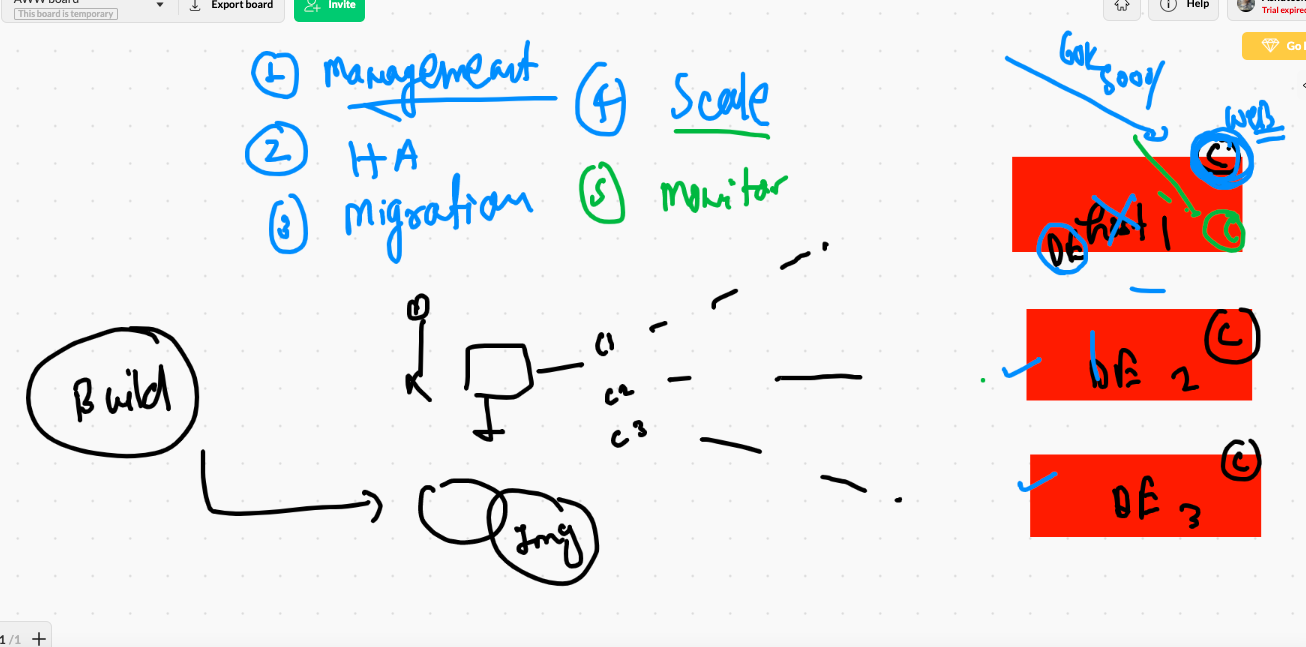 AWW board
This board is temporary
Export board
Invite
Help
Trial expired
Go
1 Management
2 HA
3 Migration
4 Scale
5 Monitor
60K
8000/
WEB
C
DE Host 1
C
D
K
C1
C2
C3
C
DE 2
C
DE 3
Build
Img
1 /1